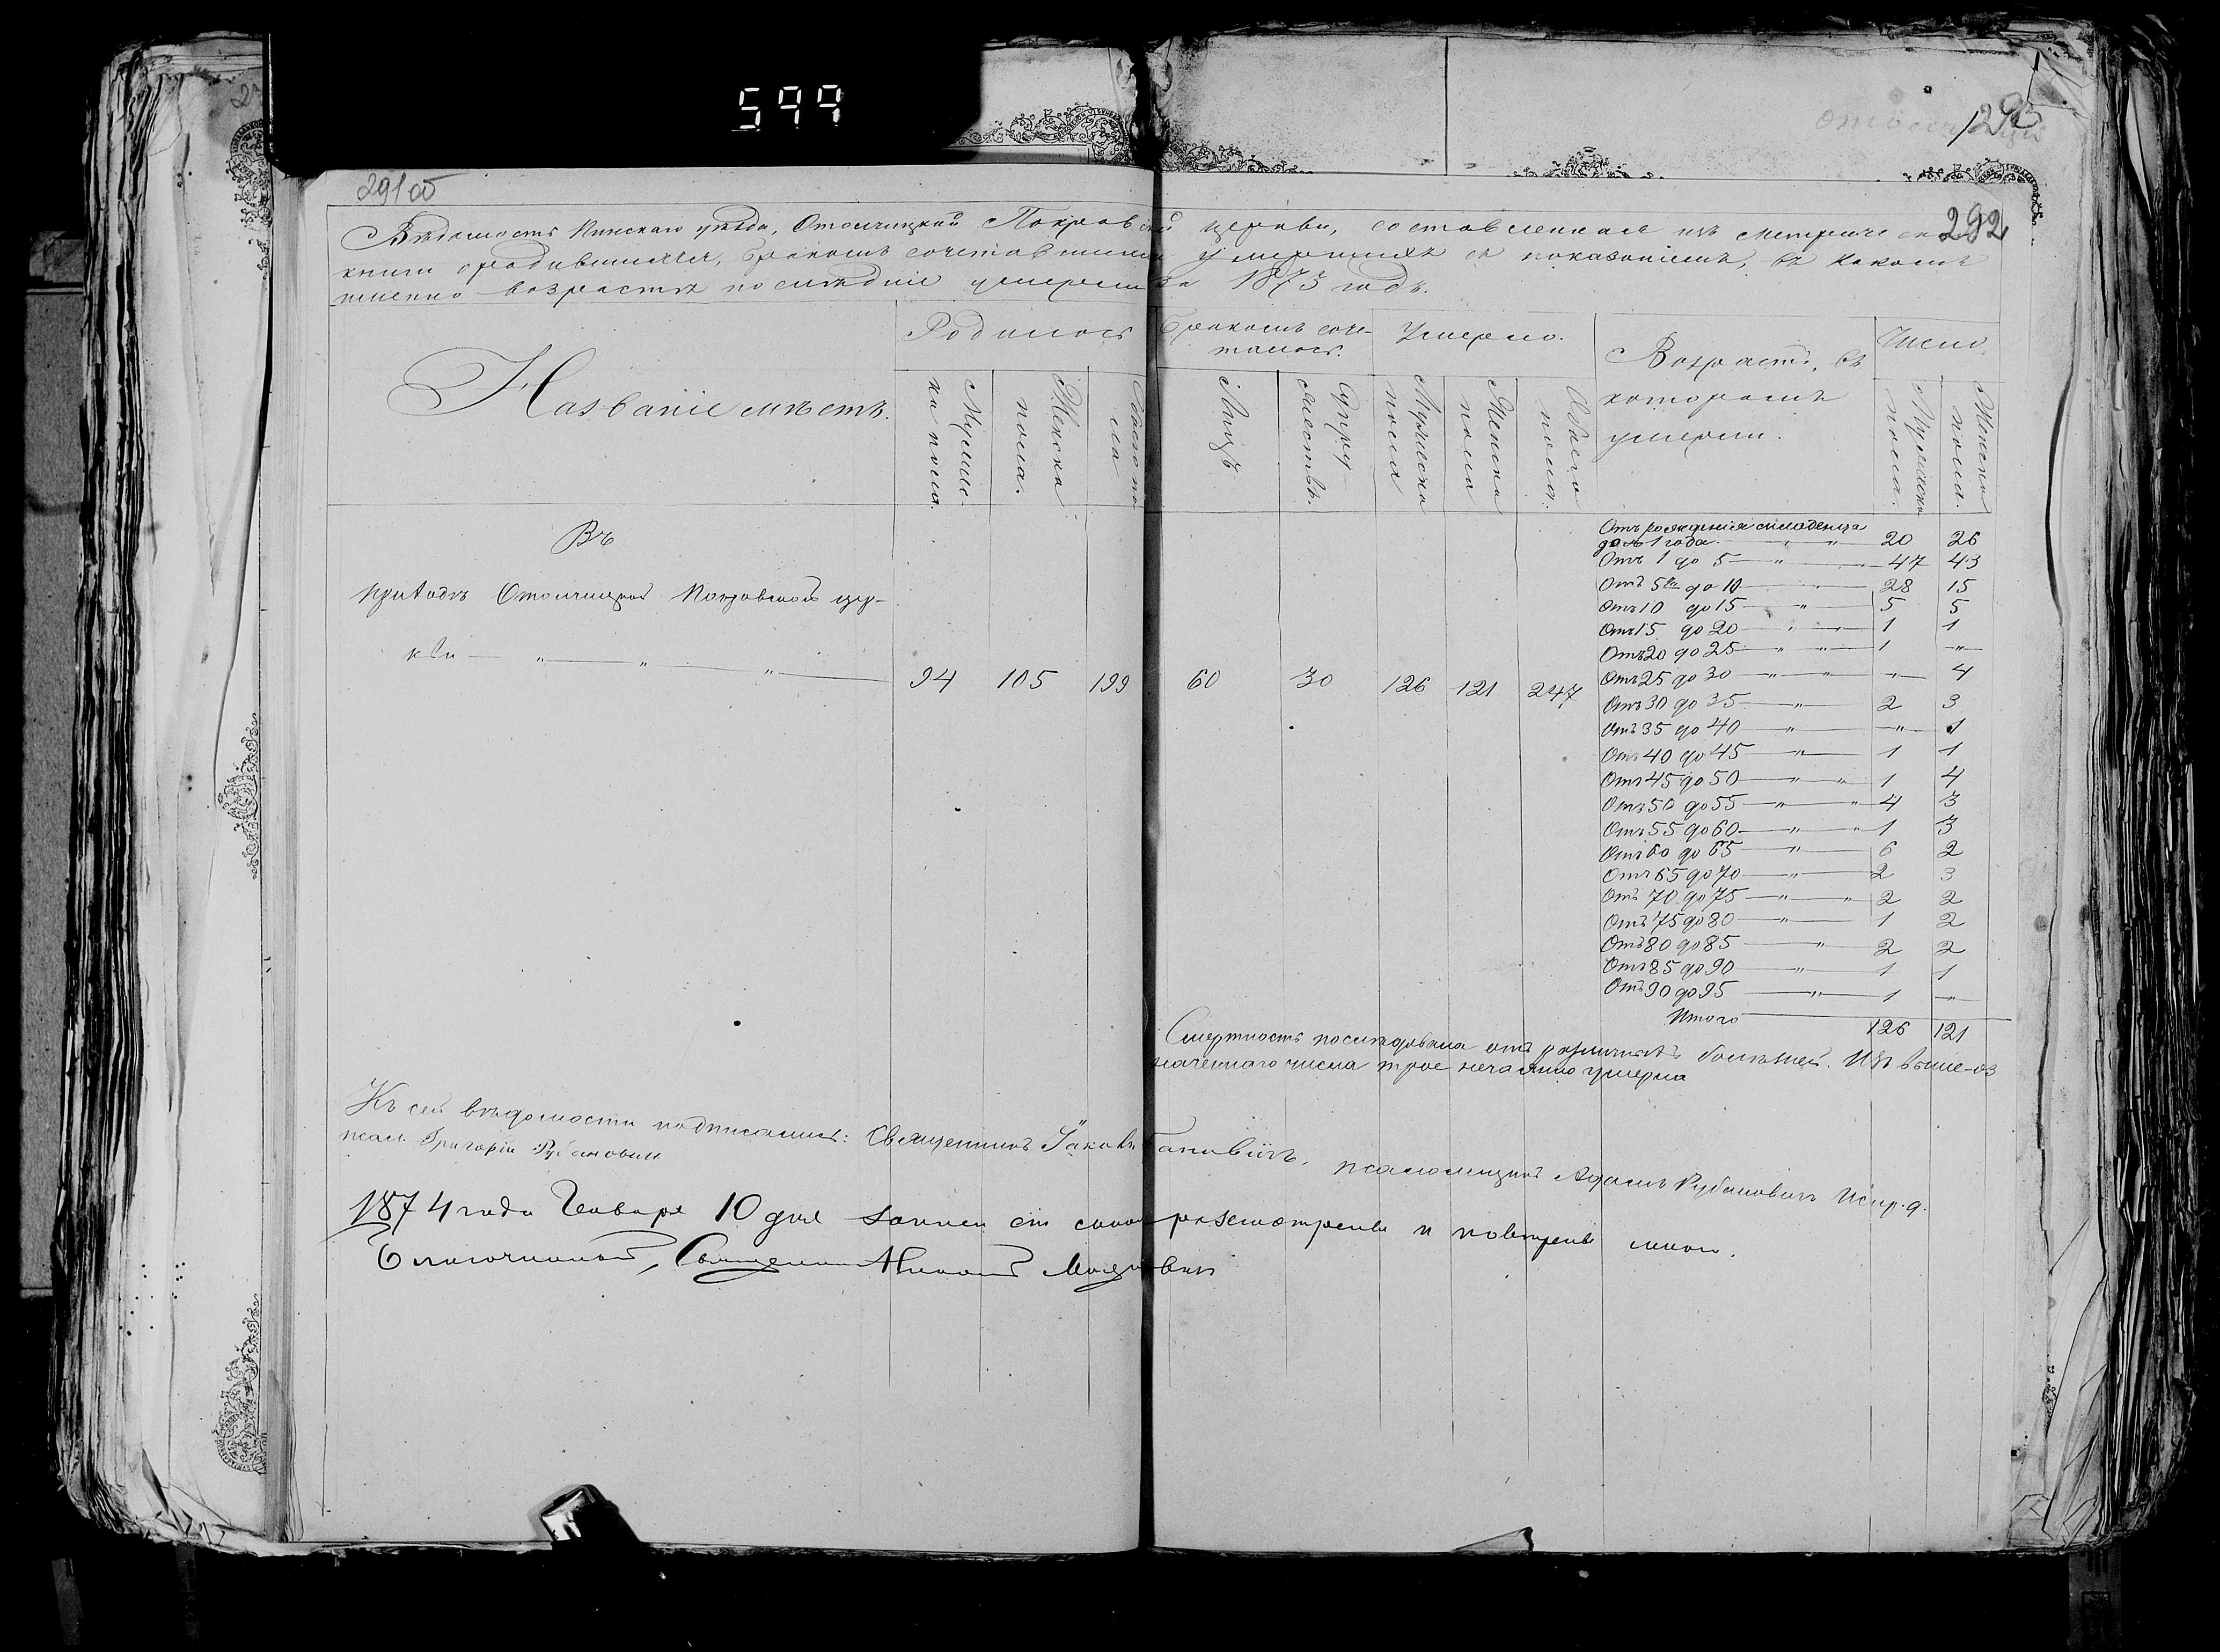 599
293
291 об
292
Вѣдомость Пинскаго уѣзда, Отолчицкой Покровской церкви, составленная изъ метрической
книги о родившихся, бракомъ сочетавшихся умершихъ съ показаніемъ, въ какомъ
именно возрастѣ послѣдніе умерли за 1873 годъ.
Названіе мѣстъ.
Родилось
Бракомъ соче-
талось.
Умерло.
Возрастъ, въ
которомъ
умерли.
Число
Мужес-
ка пола.
Женска
пола.
Обоего по
ла
Лицъ
Супру-
жествъ.
Мужеска
пола
Женска
пола
Обоего
пола.
Мужеска
пола.
Женска
пола.
Въ
приходѣ Отолчицкой Покровской цер-
кви — „ — „ — „ — 94 105 199 60 30 126 121 247
Отъ рожденія младенца
до 1 года „ „ 20 26
Отъ 1 до 5 — „ — 47 43
Отъ 5 до 10 — „ — 28 15
Отъ 10 до 15 — „ — 5 5
Отъ 15 до 20 — „ — 1 1
Отъ 20 до 25 — „ — 1 — „ —
Отъ 25 до 30 — „ — „ — 4
Отъ 30 до 35 — „ — 2 3
Отъ 35 до 40 — „ — „ — 1
Отъ 40 до 45 — „ — 1 1
Отъ 45 до 50 — „ — 1 4
Отъ 50 до 55 — „ — 4 3
Отъ 55 до 60 — „ — 1 3
Отъ 60 до 65 — „ — 6 2
Отъ 65 до 70 — „ — 2 3
Отъ 70 до 75 — „ — 2 2
Отъ 75 до 80 — „ — 1 2
Отъ 80 до 85 — „ — 2 2
Отъ 85 до 90 — „ — 1 1
Отъ 90 до 95 — „ — 1 — „ —
Итого — 126 121
Смертность послѣдовала отъ различныхъ болѣзней. Изъ выше-оз
наченнаго числа трое нечаянно умерло
Къ сей вѣдомости подписались: Священникъ Іаковъ псаломщикъ Адамъ Рубановичъ Испр. д.
псал. Григорій Рубановичъ
1874 года Генваря 10 дня записи сіи разсмотрены и повѣрены мною.
Благочинный, Священникъ